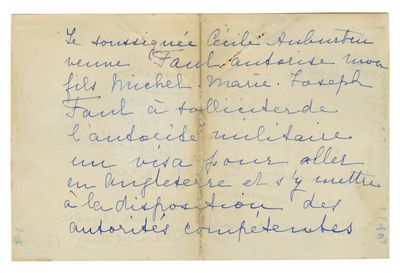 Je soussignée Cécile Auburtin
veuve Faul autorise mon
fils Michel. Marie. Joseph
Faul à solliciter de
l'autorité militaire
un visa pour aller
en Angleterre et s'y mettre
à la disposition des
autorités compétentes